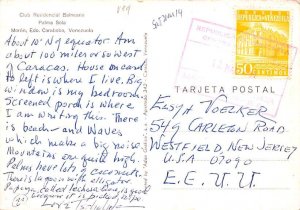 Club Residencial Balneario
Palma Sola
Morón, Edo. Carabobo, Venezuela
About 10° N of equator. Am
about 100 miles or so west
of Caracas. House on card
to left is where I live. Big
window is my bedroom.
Screened porch is where I
am writing this. There
is beach and waves
which make a big noise.
Mountains are quite high.
Palms here lots of coconuts.
There is a
Papaya called lechosa here, is good
REPUBLICA
VENEZUELA
50
CENTIMOS
TARJETA POSTAL
Elsya Voelker
549 Carleton Road
Westfield, New Jersey
U.S.A 07090
E.E.U.U.